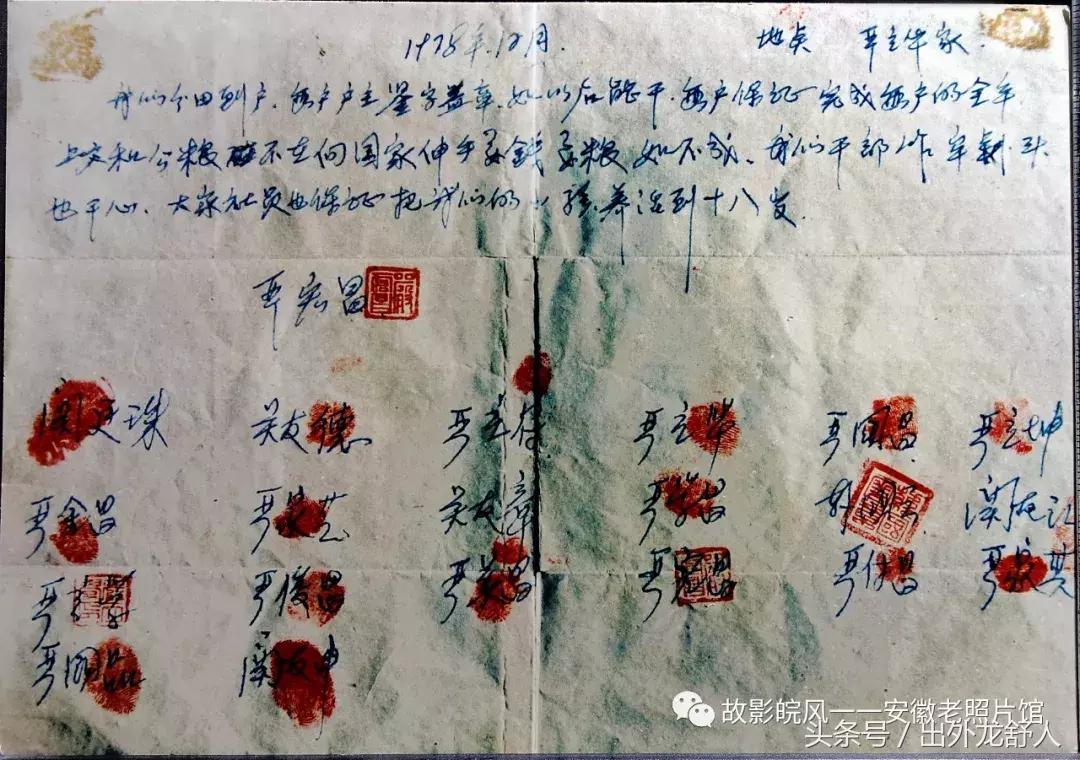 1978年12月. 地点 严立华家.
我们分田到户. 每户户主鉴字盖章. 如以后能干. 每户保证完成每户的全年
上交和公粮 不在向国家伸手要钱要粮. 如不成. 我们干部作牢剎头
也干心. 大家社员也保证把我们的小孩. 养活到十八岁.
严宏昌
关廷珠 关友德 严立符 严立华 严国昌 严立坤
严金昌 严家芝 关友章 严学昌 韩国云 关友江
严立学 严俊昌 严美昌 严宏昌 严付昌 严家其
严国品 关友申
故影皖风——安徽老照片馆
头条号／出外龙舒人